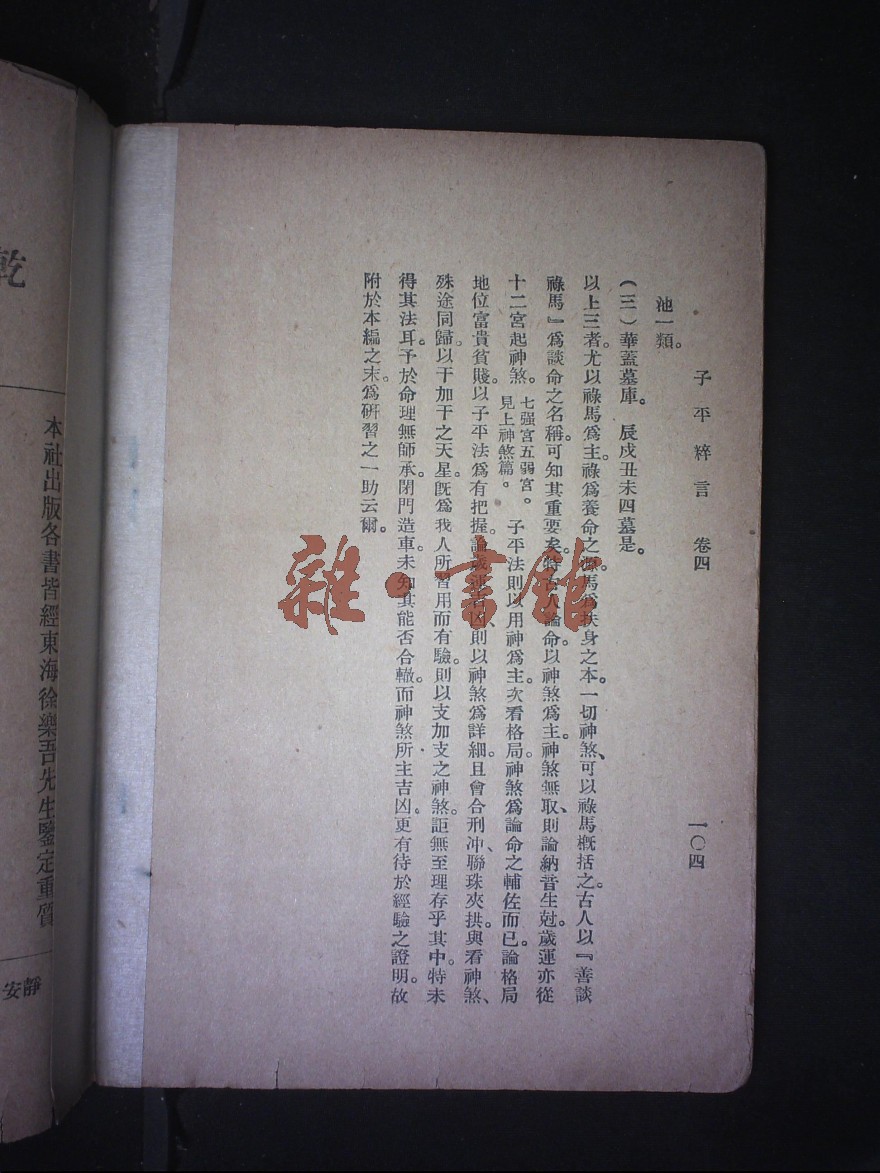 子平粹言　卷四
一〇四
池一類。
（三）華蓋墓庫。　辰戌丑未四墓是。
以上三者。尤以祿馬爲主。祿爲養命之源。馬爲扶身之本。一切神煞、可以祿馬概括之。古人以『善談
祿馬』爲談命之名稱。可知其重要矣。特古人論命。以神煞爲主。神煞無取、則論納音生尅。歲運亦從
十二宮起神煞。七强宮五弱宮。見上神煞篇。子平法則以用神爲主。次看格局。神煞爲論命之輔佐而已。論格局
地位富貴貧賤。以子平法爲有把握。論歲運吉凶、則以神煞爲詳細。且會合刑冲、聯珠夾拱。與看神煞、
殊途同歸。以干加干之天星。旣爲我人所習用而有驗。則以支加支之神煞。詎無至理存乎其中。特未
得其法耳。予於命理無師承。閉門造車。未知其能否合轍。而神煞所主吉凶。更有待於經驗之證明。故
附於本編之末。爲硏習之一助云爾。
乾
本社出版各書皆經東海徐樂吾先生鑒定重質
靜安
雜·書館